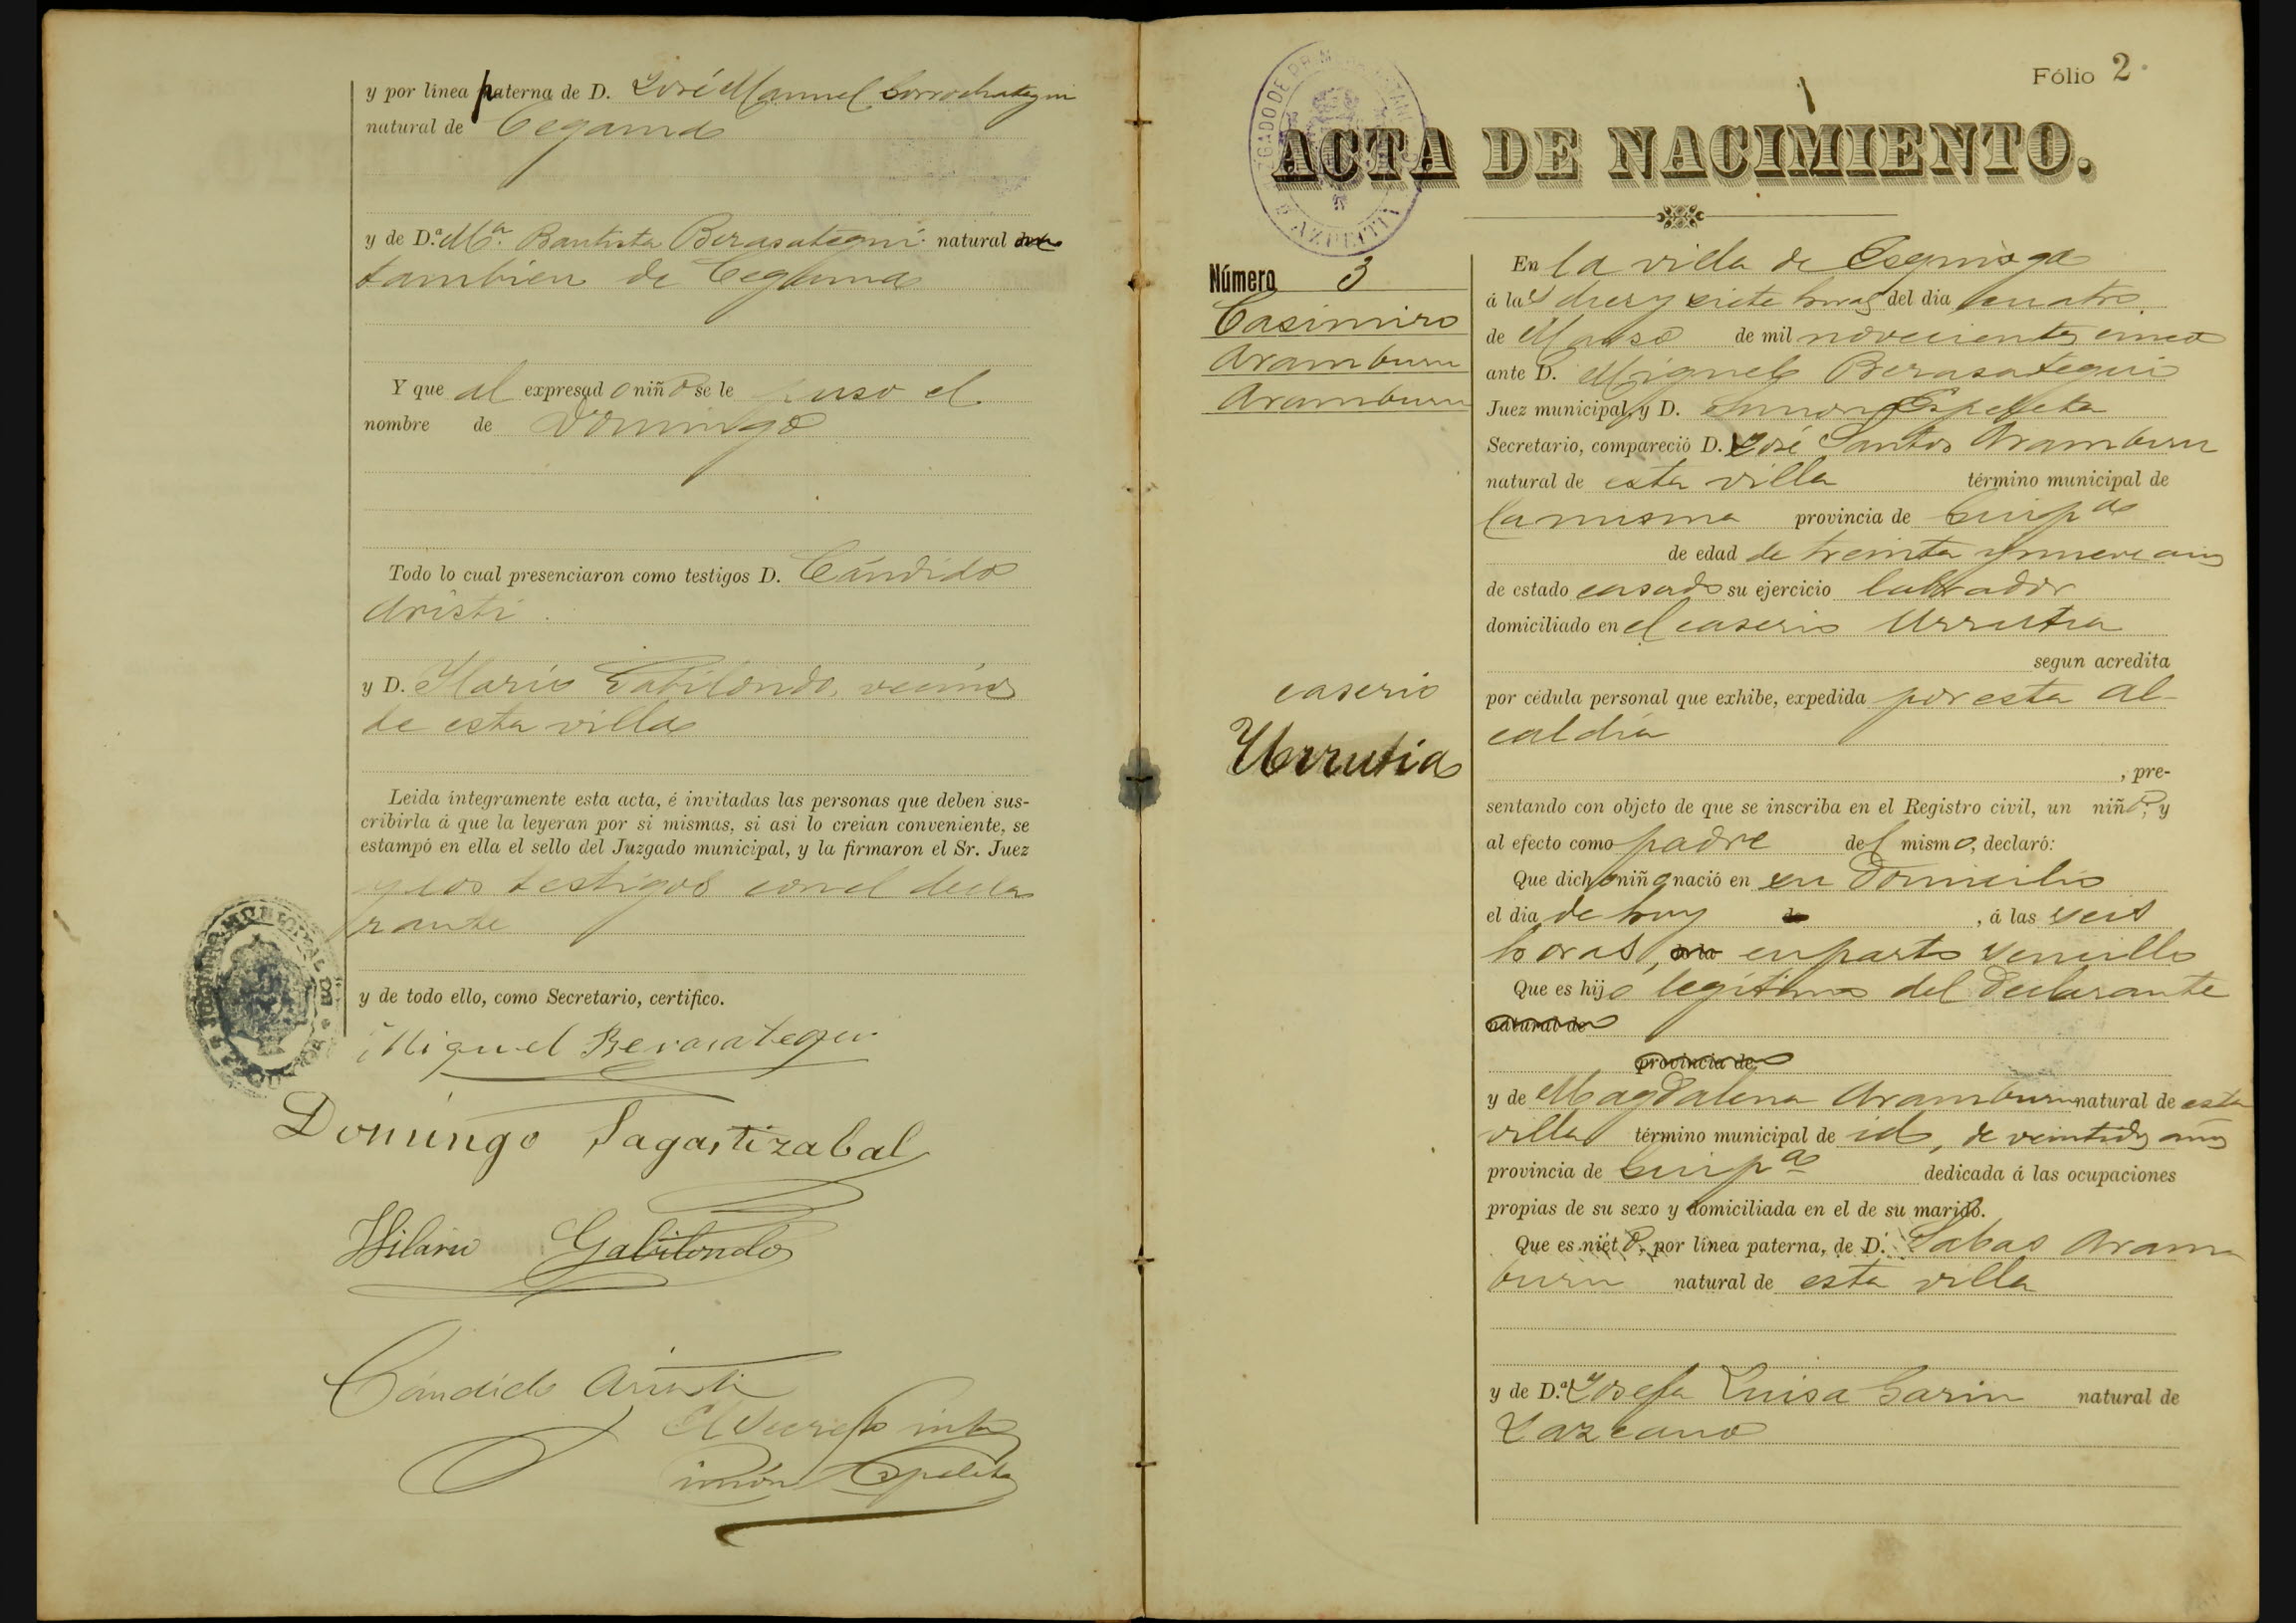 y por línea paterna de D. José Manuel Gorrochategui
natural de Cegama
y de D.ª M.ª Bautista Berasategui natural
tambien de Cegama
Y que al expresado niño se le puso el
nombre de Domingo
Todo lo cual presenciaron como testigos D. Cándido
Aristi
y D. Ilario Gabilondo, vecinos
de esta villa
Leida íntegramente esta acta, é invitadas las personas que deben sus-
cribirla á que la leyeran por si mismas, si asi lo creian conveniente, se
estampó en ella el sello del Juzgado municipal, y la firmaron el Sr. Juez
y los testigos con el decla
rante
y de todo ello, como Secretario, certifico.
Miguel Berasategui
Domingo Sagastizabal
Hilario Gabilondo
Cándido Aristi
El Secret.º int.º
Simón Espeleta
Fólio 2
JUZGADO DE PRIMERA INSTANCIA
AZPEITIA
ACTA DE NACIMIENTO.
Número 3
Casimiro
Aramburu
Aramburu
caserio
Urrutia
En la villa de Ezquioga
á las diez y siete horas del dia cuatro
de Marso de mil novecientos cinco
ante D. Miguel Berasategui
Juez municipal, y D. Simon Espeleta
Secretario, compareció D. José Santos Aramburu
natural de esta villa término municipal de
la misma provincia de Guip.ª
de edad de treinta y nueve años
de estado casado su ejercicio labrador
domiciliado en el caserio Urrutia
segun acredita
por cédula personal que exhibe, expedida por esta al-
caldia
, pre-
sentando con objeto de que se inscriba en el Registro civil, un niño; y
al efecto como padre del mismo, declaró:
Que dicho niño nació en su domicilio
el dia de hoy de , á las seis
horas, en parto sencillo
Que es hijo legítimo del declarante
natural de
provincia de
y de Magdalena Aramburu natural de esta
villa término municipal de id, de veintidos años
provincia de Guip.ª dedicada á las ocupaciones
propias de su sexo y domiciliada en el de su marido.
Que es nieto, por línea paterna, de D. Sabas Aram
buru natural de esta villa
y de D.ª Josefa Luisa Garin natural de
Lazcano